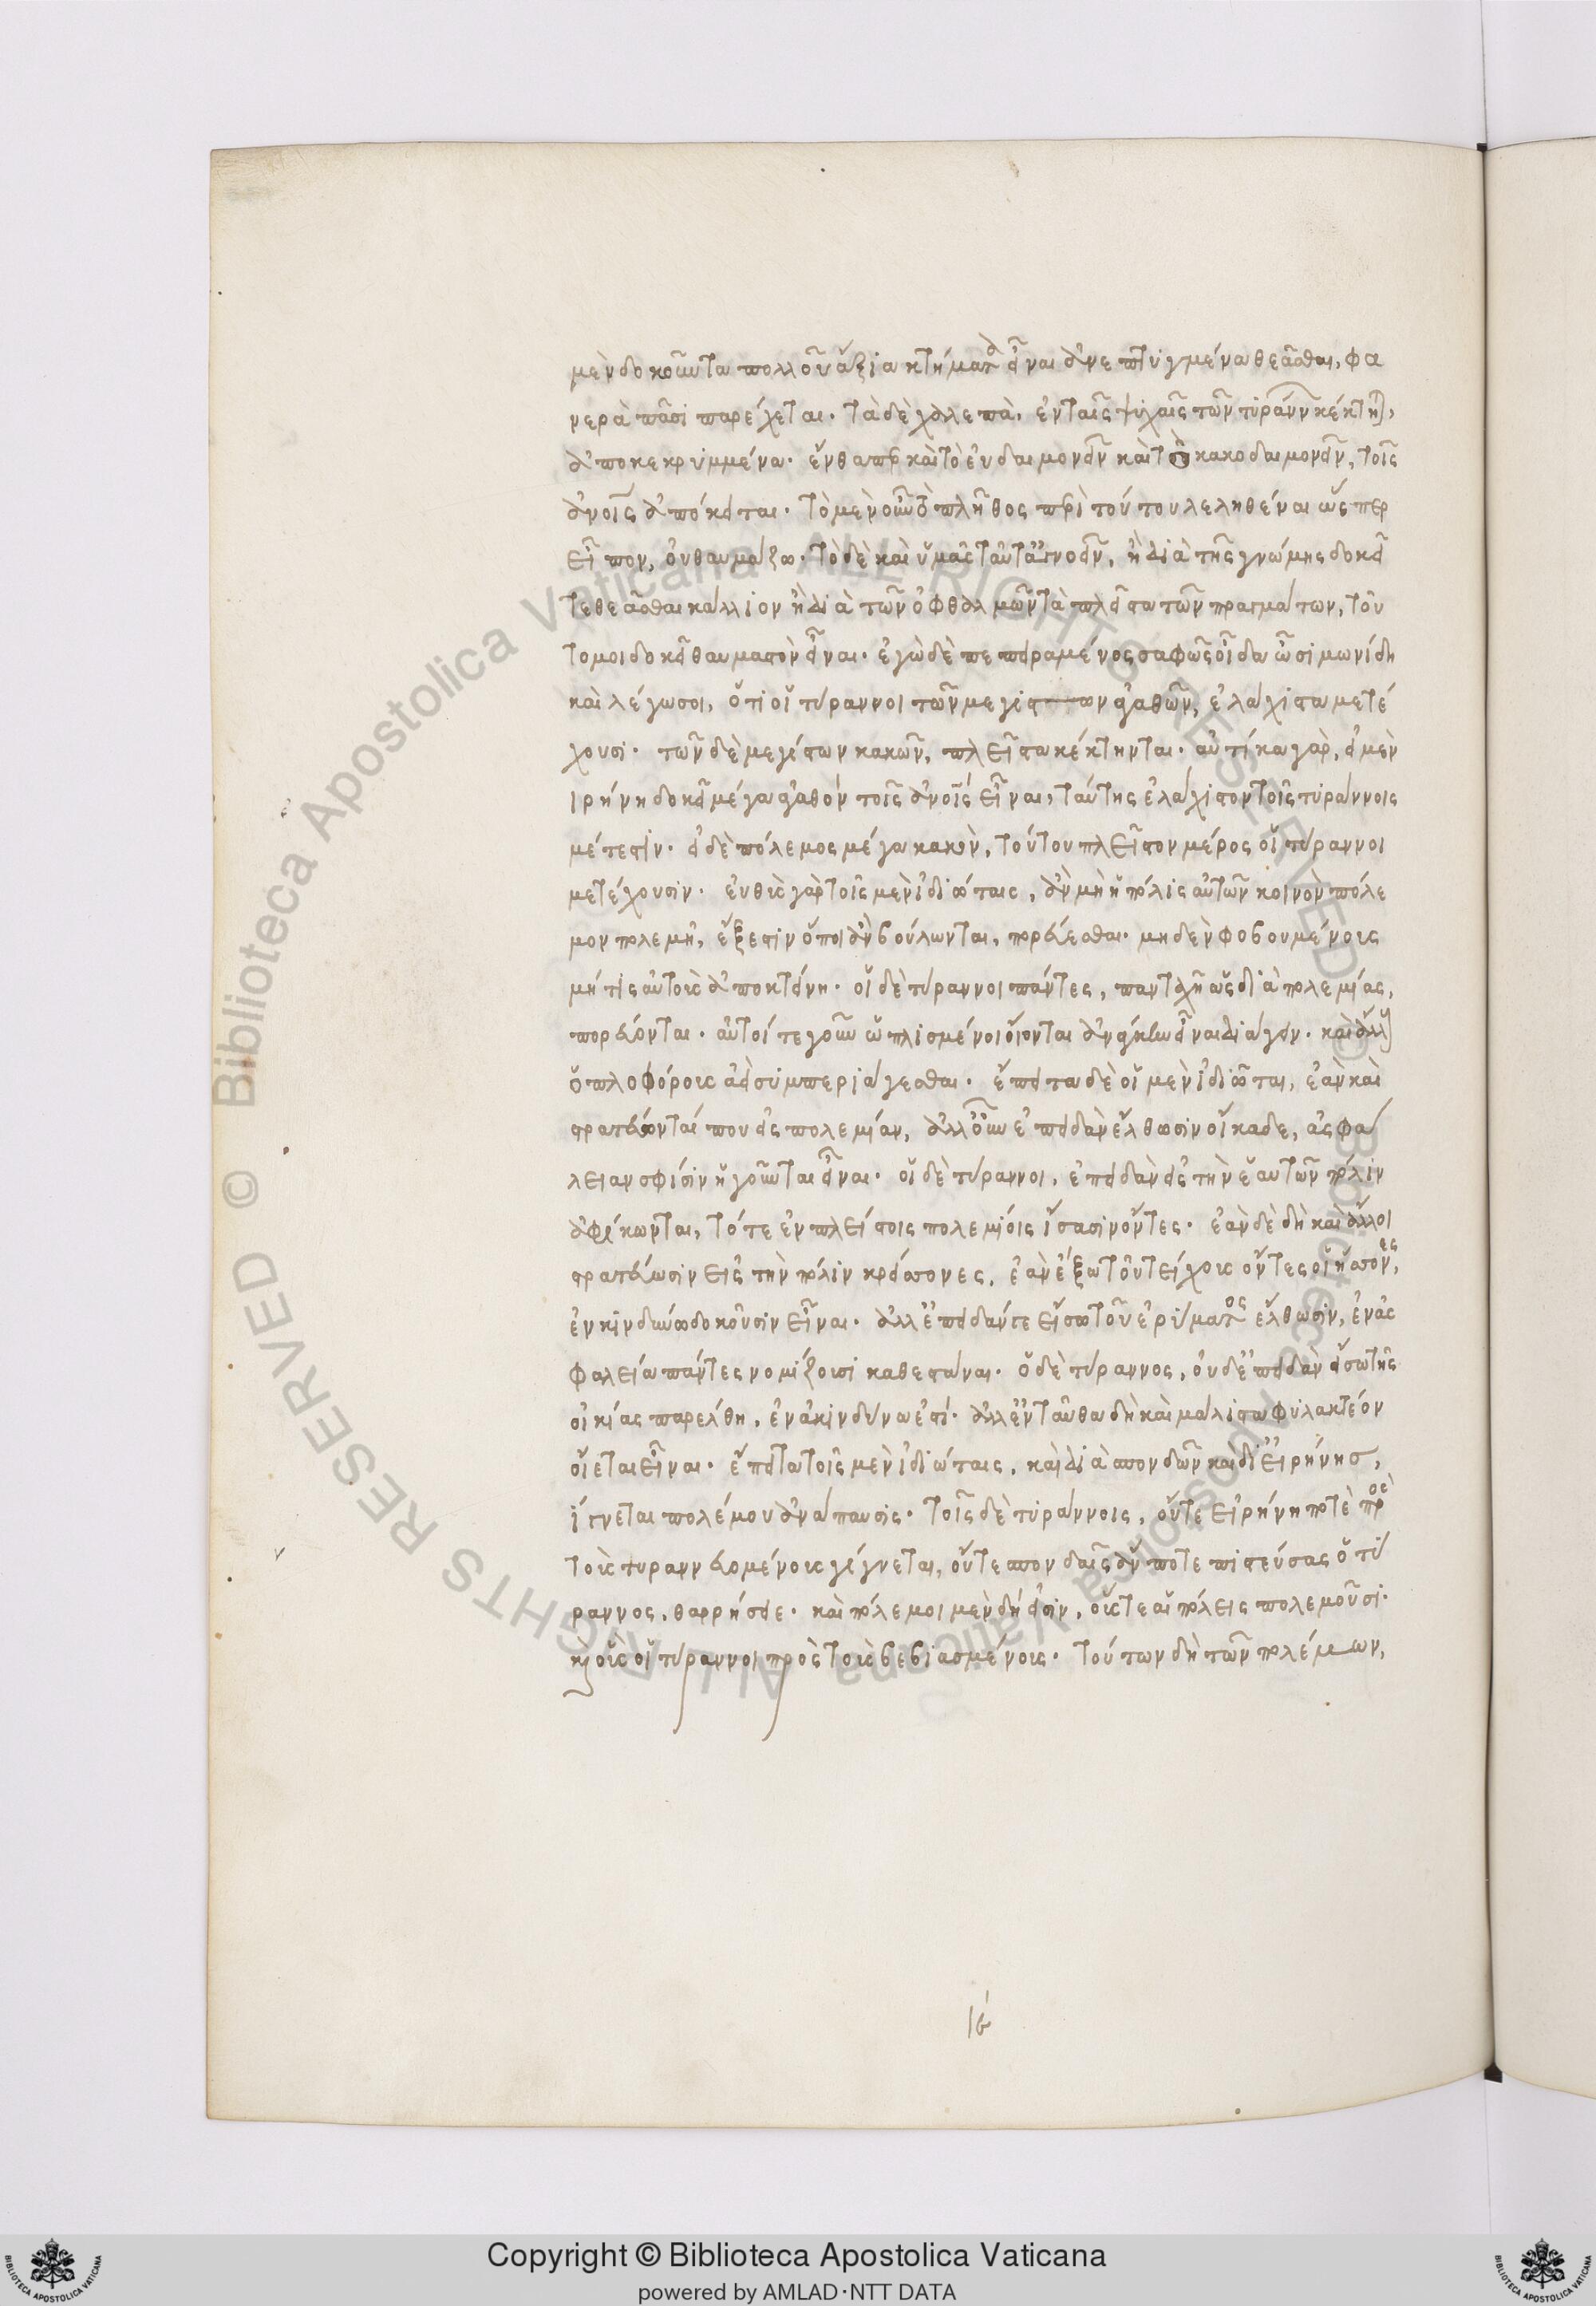 μὲν δοκοῦντα πολλοῦ ἄξια κτήματα εἶναι ἀνεπτυγμένα θεᾶσθαι, φα
νερὰ πᾶσι παρέχεται· τὰ δὲ χαλεπὰ, ἐν ταῖς ψυχαῖς τῶν τυράννων κέκτηται,
ἀποκεκρυμμένα· ἔνθαπερ καὶ τὸ εὐδαιμονεῖν καὶ τὸ κακοδαιμονεῖν, τοῖς
ἀνοις ἀπόκειται· τὸ μὲν οὖν τὸ πλῆθος περὶ τούτου λεληθέναι ὥσπερ
εἶπον, οὐ θαυμάζω· τὸ δὲ καὶ ὑμᾶς ταῦτ' ἀγνοεῖν, ἢ διὰ τῆς γνώμης δοκεῖ
τε θεᾶσθαι κάλλιον ἢ διὰ τῶν ὀφθαλμῶν τὰ πλεῖστα τῶν πραγμάτων, τοῦ
το μοι δοκεῖ θαυμαστὸν εἶναι· ἐγὼ δὲ πεπειραμένος σαφῶς οἶδα ὦ σιμωνίδη
καὶ λέγω σοι, ὅτι οἱ τύραννοι τῶν μεγίστων ἀγαθῶν, ἐλάχιστα μετέ
χουσι· τῶν δὲ μεγίστων κακῶν, πλεῖστα κέκτηνται· αὐτίκα γὰρ, εἰ μὲν
ἰρήνη δοκεῖ μέγα ἀγαθόν τοῖς ἀνοις εἶναι, ταύτης ἐλάχιστον τοῖς τυράννοις
μέτεστιν· εἰ δὲ πόλεμος μέγα κακὸν, τούτου πλεῖστον μέρος οἱ τύραννοι
μετέχουσιν· εὐθὺς γὰρ τοῖς μὲν ἰδιώταις, ἂν μὴ ἡ πόλις αὐτῶν κοινὸν πόλε
μον πολεμῆ, ἔξεστιν ὅποι ἂν βούλωνται, πορεύεσθαι· μηδὲν φοβουμένους
μή τις αὐτοὺς ἀποκτείνη· οἱ δὲ τύραννοι πάντες, πανταχῆ ὡς διὰ πολεμίας,
πορεύονται· αὐτοί τε γοῦν ὡπλισμένοι οἴονται ἀνάγκην εἶναι διάγειν· καὶ ἄλλους
ὁπλοφόρους ἀεὶ συμπεριάγεσθαι· ἔπειτα δὲ οἱ μὲν ἰδιῶται, ἐὰν καὶ
στρατεύωνταί που εἰς πολεμίαν, ἀλλ' οὖν ἐπειδὰν ἔλθωσιν οἴκαδε, ἀσφά
λειαν σφίσιν ἡγοῦνται εἶναι· οἱ δὲ τύραννοι, ἐπειδὰν εἰς τὴν ἑαυτῶν πόλιν
ἀφίκωνται, τότε ἐν πλείστοις πολεμίοις ἴσασιν ὄντες· ἐὰν δὲ δὴ καὶ ἄλλοι
στρατεύωσιν εἰς τὴν πόλιν κρείττονες, ἐὰν ἔξω τοῦ τείχους ὄντες οἱ ἥττονες,
ἐν κινδύνω δοκοῦσιν εἶναι· ἀλλ' ἐπειδάν γε εἴσω τοῦ ἐρύματος ἔλθωσιν, ἐν ἀσ
φαλεία πάντες νομίζουσι καθεστάναι· ὁ δὲ τύραννος, οὐδ' ἐπειδὰν εἴσω τῆς
οἰκίας παρέλθη, ἐν ἀκινδύνω ἐστί· ἀλλ' ἐνταῦθα δὴ καὶ μάλιστα φυλακτέον
οἴεται εἶναι· ἔπειτα τοῖς μὲν ἰδιώταις, καὶ διὰ σπονδῶν καὶ δι' εἰρήνης,
γίγνεται πολέμου ἀνάπαυσις· τοῖς δὲ τυράννοις, οὔτε εἰρήνη ποτὲ πρὸς
τοὺς τυραννευομένους γίγνεται, οὔτε σπονδαῖς ἄν ποτε πιστεύσας ὁ τύ
ραννος, θαρρήσειε· καὶ πόλεμοι μὲν δή εἰσιν, οὕς τε αἱ πόλεις πολεμοῦσι·
καὶ οὓς οἱ τύραννοι πρὸς τοὺς βεβιασμένους· τούτων δὴ τῶν πολέμων,
ις